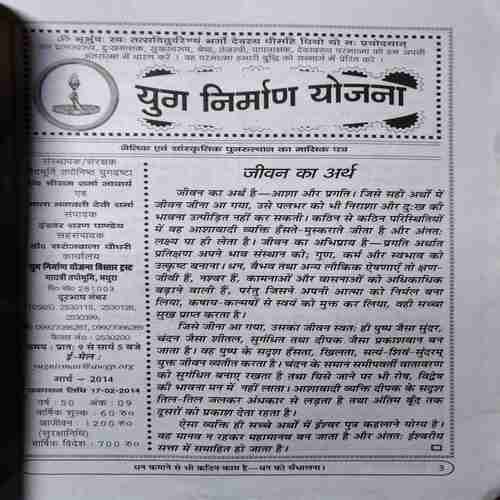 ॐ भूर्भुवः स्वः तत्सवितुर्वरेण्यं भर्गो देवस्य धीमहि धियो यो नः प्रचोदयात्
उस प्राणस्वरूप, दुःखनाशक, सुखस्वरूप, श्रेष्ठ, तेजस्वी, पापनाशक, देवस्वरूप परमात्मा को हम अपनी
अंतरात्मा में धारण करें । वह परमात्मा हमारी बुद्धि को सन्मार्ग में प्रेरित करे ।
युग निर्माण योजना
नैतिक एवं सांस्कृतिक पुनरुत्थान का मासिक पत्र
संस्थापक/संरक्षक
वेदमूर्ति तपोनिष्ठ युगद्रष्टा
पं० श्रीराम शर्मा आचार्य
एवं
माता भगवती देवी शर्मा
संपादक
ईश्वर शरण पाण्डेय
सहसंपादक
डॉ० सरोजबाला चौधरी
कार्यालय
युग निर्माण योजना विस्तार ट्रस्ट
गायत्री तपोभूमि, मथुरा
पिन को० 281003
दूरभाष नंबर
(0565) 2530115, 2530128,
2530399,
मो० 09927086287, 09927086289
फैक्स नं० : 2530200
समय : प्रातः ९ से सायं ५ बजे
ई-मेल :
मार्च - 2014
प्रकाशन तिथि 17-02-2014
वर्ष : 50 अंक : 09
वार्षिक शुल्क : 60 रु०
आजीवन : 1200 रु०
(सुरक्षानिधि)
वार्षिक विदेश : 700 रु०
जीवन का अर्थ
जीवन का अर्थ है—आशा और प्रगति। जिसे सही अर्थों में
जीवन जीना आ गया, उसे पलभर को भी निराशा और दुःख की
भावना उत्पीड़ित नहीं कर सकती। कठिन से कठिन परिस्थितियों
में वह आशावादी व्यक्ति हँसते-मुस्कराते जीता है और अंततः
लक्ष्य पा ही लेता है। जीवन का अभिप्राय है—प्रगति अर्थात
प्रतिक्षण अपने भाव संस्थान को; गुण, कर्म और स्वभाव को
उत्कृष्ट बनाना। धन, वैभव तथा अन्य लौकिक ऐषणाएँ तो क्षण-
जीवी हैं, नश्वर हैं, कामनाओं और वासनाओं को अधिकाधिक
बढ़ाने वाली हैं, परंतु जिसने अपनी आत्मा को निर्मल बना
लिया, कषाय-कल्मषों से स्वयं को मुक्त कर लिया, वही सच्चा
सुख प्राप्त करता है।
जिसे जीना आ गया, उसका जीवन स्वतः ही पुष्प जैसा सुंदर,
चंदन जैसा शीतल, सुगंधित तथा दीपक जैसा प्रकाशवान बन
जाता है। वह पुष्प के सदृश हँसता, खिलता, सत्यं-शिवं-सुंदरम्
युक्त जीवन व्यतीत करता है। चंदन के समान समीपवर्ती वातावरण
को सुगंधित बनाए रखता है तथा घिसे जाने पर भी रोष, विद्वेष
की भावना मन में नहीं लाता। आशावादी व्यक्ति दीपक के सदृश
तिल-तिल जलकर अंधकार से लड़ता है तथा अंतिम बूँद तक
दूसरों को प्रकाश देता रहता है।
ऐसा व्यक्ति ही सच्चे अर्थों में ईश्वर पुत्र कहलाने योग्य है।
वह मानव न रहकर महामानव बन जाता है और अंततः ईश्वरीय
सत्ता में समाहित हो जाता है।
धन कमाने से भी कठिन काम है—धन को सँभालना।
3